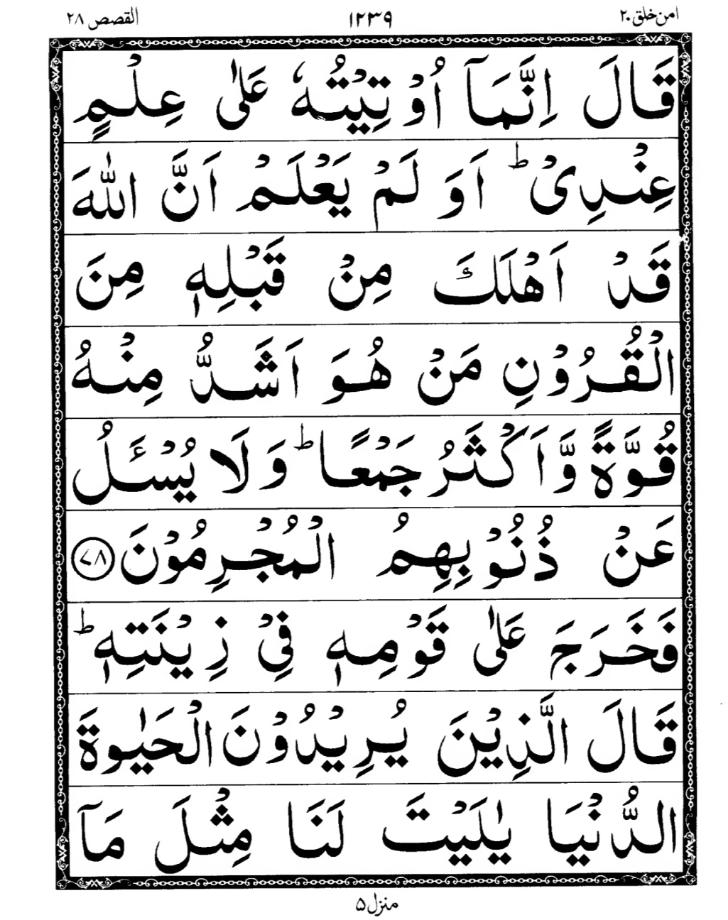 امن خلق ۲۰ ۱۲۳۹ القصص ۲۸
قَالَ اِنَّمَاۤ اُوْتِيْتُهٗ عَلٰى عِلْمٍ
عِنْدِىْ ؕ اَوَ لَمْ يَعْلَمْ اَنَّ اللّٰهَ
قَدْ اَهْلَكَ مِنْ قَبْلِهٖ مِنَ
الْقُرُوْنِ مَنْ هُوَ اَشَدُّ مِنْهُ
قُوَّةً وَّاَكْثَرُ جَمْعًا ؕ وَلَا يُسْـَٔلُ
عَنْ ذُنُوْبِهِمُ الْمُجْرِمُوْنَ ﴿۷۸﴾
فَخَرَجَ عَلٰى قَوْمِهٖ فِىْ زِيْنَتِهٖ ؕ
قَالَ الَّذِيْنَ يُرِيْدُوْنَ الْحَيٰوةَ
الدُّنْيَا يٰلَيْتَ لَنَا مِثْلَ مَاۤ
منزل ۵